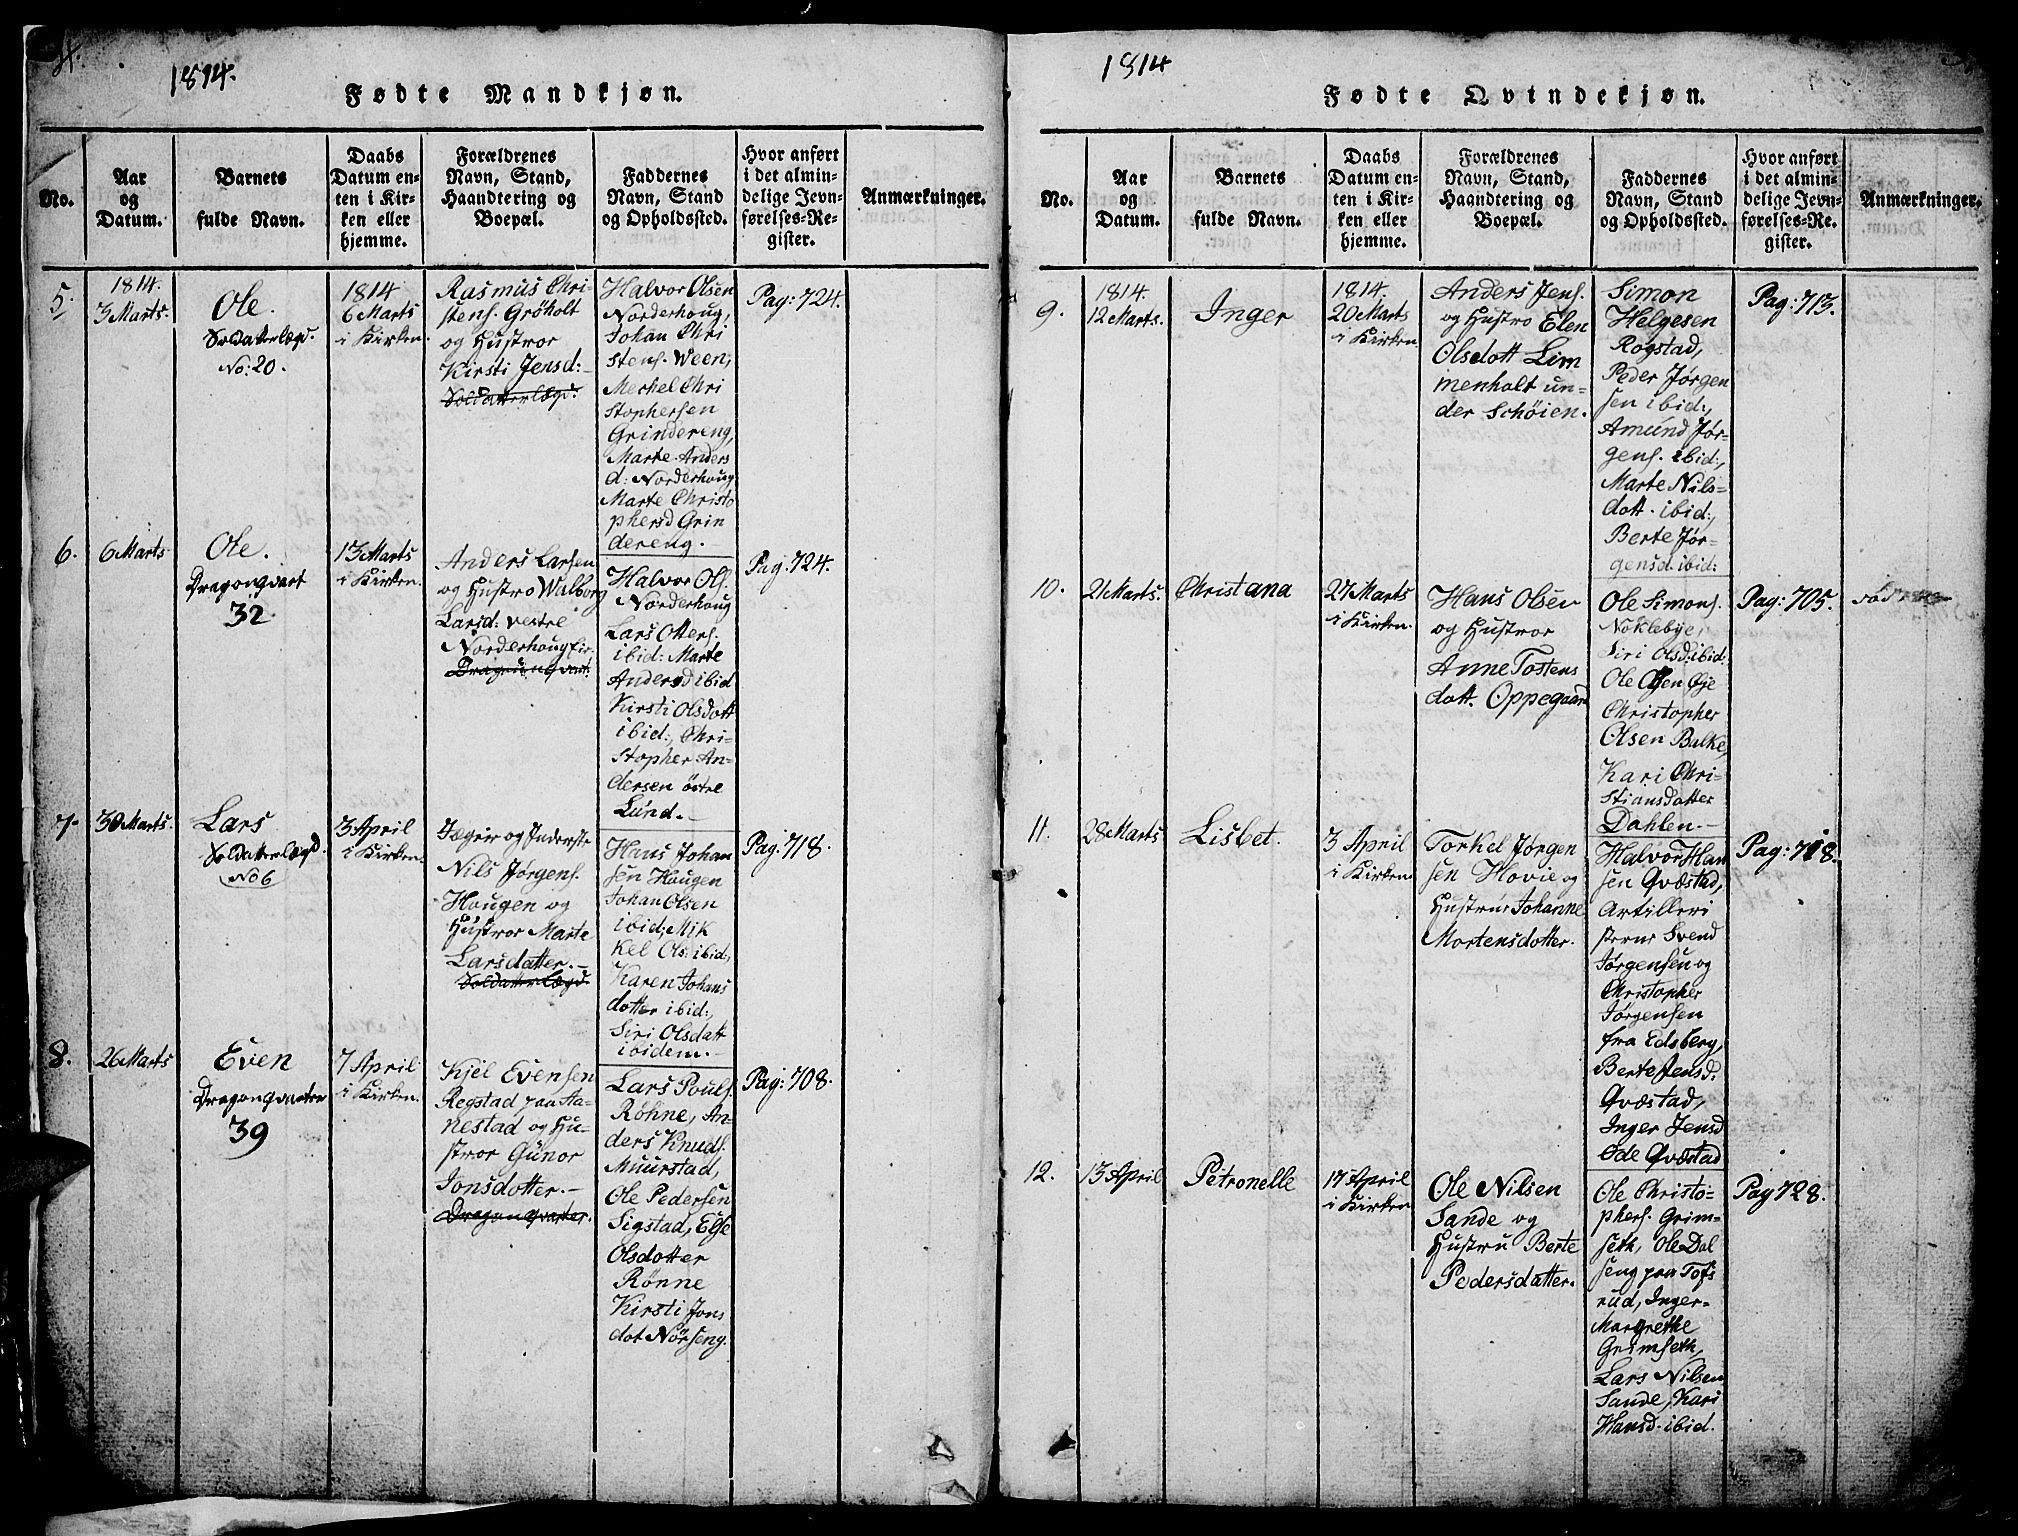 1814.
Fødte Mandkjøn.
No.
Aar
og
Datum.
Barnets
fulde Navn.
Daabs
Datum en-
ten i Kir-
ken eller
hjemme.
Forældrenes
Navn, Stand,
Haandtering og
Boepæl.
Faddernes
Navn, Stand
og Opholdssted.
Hvor anført
i det almin-
delige Jevn-
førelses-Re-
gister.
Anmærkninger.
5.
1814.
3 Marts.
Ole.
Soldatterlægd.
No: 20.
1814
6 Marts
i Kirken.
Rasmus Chri-
stens. Gröholt
og Hustror
Kirsti Jensd:-
Soldatterlægd.
Halvor Olsen
Norderhoug,
Johan Chri
stens. Ween,
Merkel Chri
stophersen
Grindereng,
Marte Anders
d: Norderhoug
Marte Christo
phersd Grin
dereng.-
Pag: 724.
6.
6 Marts
Ole.
Dragonqvart
32
13 Marts
i Kirken.
Anders Larsen
og Hustro Walborg
Larsd: vestre
Norderhougeir.
Dragonqvart.
Halvor Ols.
Norderhoug
Lars Otters.
ibid: Marte
Andersd ibid
Kirsti Olsdott
ibid:, Chri-
stopher An-
dersen östre
Lund.-
Pag. 724.
7.
30 Marts.
Lars
Soldatterlægd.
No 6
3 April
i Kirken.
Jægeir og Inderste
Nils Jørgens.
Hougen og
Hustror Marte
Larsdatter.-
Soldatterlægd.
Hans Johan
sen Hougen
Johan Olsen
ibid; Mik
kel Ols: ibid;
Karen Johans
dotter ibid:,
Siri Olsdatt
ibidem.-
Pag. 718.
8.
26 Marts
Even
Dragonqvarter
39
7 April
i Kirken.
Kjel Evensen
Regstad paa Aa-
nestad og Hu-
stror Günor
Jonsdotter.-
Dragonqvarter.
Lars Pouls.
Röhne, An-
ders Knuds.
Muurstad,
Ole Pedersen
Sigstad, Else
Olsdotter
Rönne
Kirsti Jons
dot Nörseng.
Pag: 708.
1814
Fødte Qvindekjøn.
No.
Aar
og
Datum.
Barnets
fulde Navn.
Daabs
Datum en-
ten i Kir-
ken eller
hjemme.
Forældrenes
Navn, Stand,
Haandtering og
Boepæl.
Faddernes
Navn, Stand
og Opholdssted.
Hvor anført
i det almin-
delige Jevn-
førelses-Re-
gister.
Anmærkninger.
9.
1814.
12 Marts.
Inger
1814.
20 Marts
i Kirken
Anders Jens.
og Hustro Elen
Olsdott Lim
menholt un-
der Schöien.
Simon
Helgesen
Rogstad,
Peder Jørgen
sen ibid:,
Amund Jør-
gens. ibid:,
Marte Nils-
dott. ibid:,
Berte Jør-
gensd. ibid:
Pag: 713.
10.
21 Marts.
Christana
27 Marts
i Kirken.
Hans Olsen
og Hustror
Anne Tostens
dott. Oppegaard
Ole Simons.
Noklebye,
Siri Olsd: ibid:
Ole Olsen Øje
Christopher
Olsen Balke,
Kari Chri-
stiansdatter
Dahlen.-
Pag: 705.
11.
28 Marts
Lisbet.
3 April
i Kirken.
Torkel Jørgen
sen Hovie og
Hustrue Johanne
Mortensdotter.
Halvor Han
sen Qvæstad,
Artilleri
sterne Svend
Jørgensen og
Christopher
Jørgensen
fra Edsberg,
Berte Jensd:
Qvæstad,
Inger Jensd
Ode Qvæstad
Pag: 718.
12.
13 April
Petronelle
17 April
i Kirken
Ole Nilsen
Sande og
Hustru Berte
Pedersdatter.
Ole Christo-
phers. Grim-
seth, Ole Dal
seng paa Tofs
rud, Inger-
Margrethe
Grimseth,
Lars Nilsen
Sande, Kari
Hansd. ibid.
Pag 728.